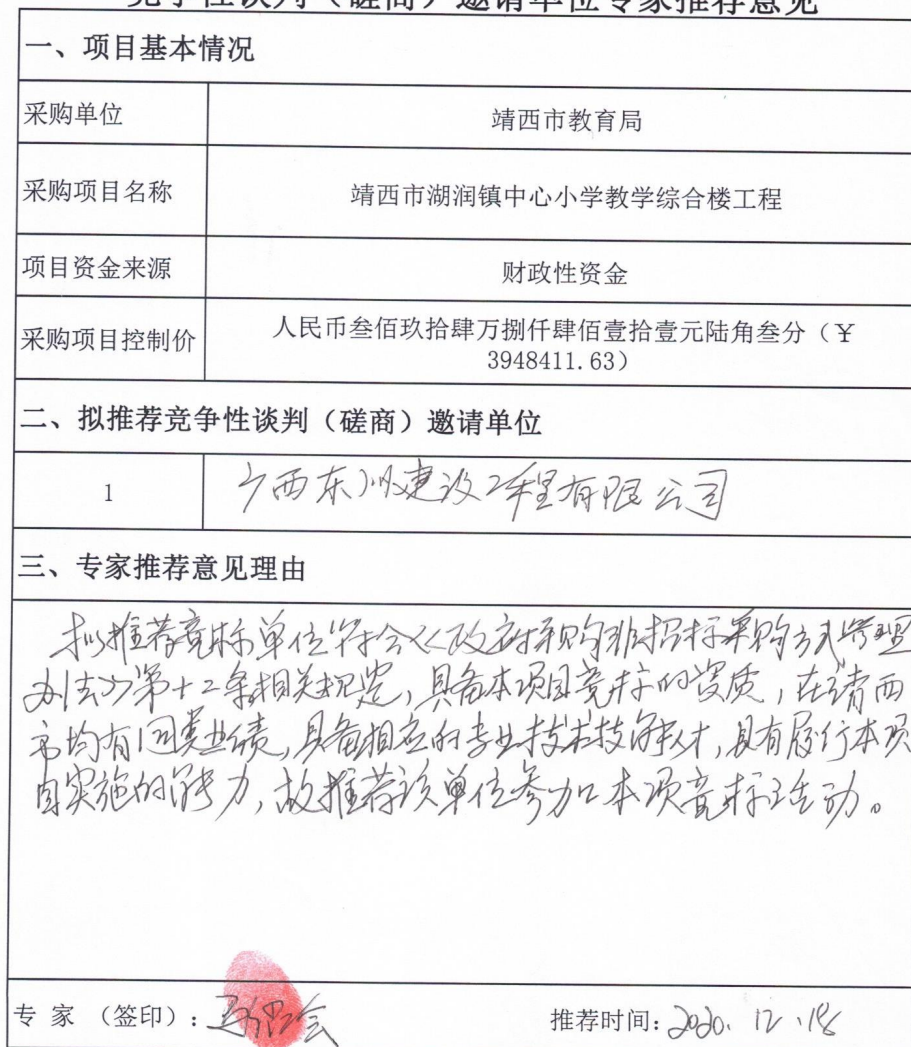 竞争性谈判（磋商）邀请单位专家推荐意见
一、项目基本情况
采购单位 靖西市教育局
采购项目名称 靖西市湖润镇中心小学教学综合楼工程
项目资金来源 财政性资金
采购项目控制价 人民币叁佰玖拾肆万捌仟肆佰壹拾壹元陆角叁分（¥
3948411.63）
二、拟推荐竞争性谈判（磋商）邀请单位
1 广西东川建设工程有限公司
三、专家推荐意见理由
拟推荐竞标单位符合《政府采购非招标采购方式管理
办法》第十二条相关规定，具备本项目竞标的资质，在靖西
市均有同类业绩，具备相应的专业技术技能人才，具有履行本项
目实施的能力，故推荐该单位参加本项竞标活动。
专 家 （签印）： 推荐时间：2020.12.18